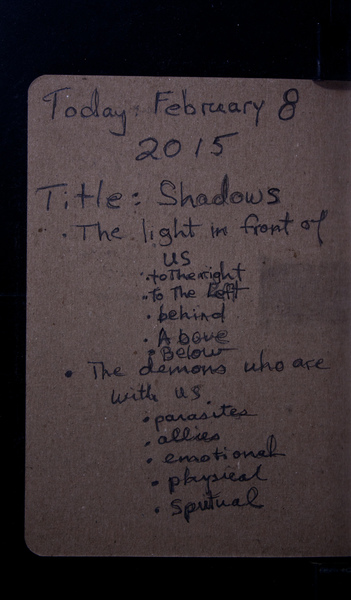 Today: February 8
2015
Title: Shadows
• The light in front of
us
• to the right
• To The Left
• behind
• Above
• Below
• The demons who are
with us.
• parasites
• allies
• emotional
• physical
• Spritual